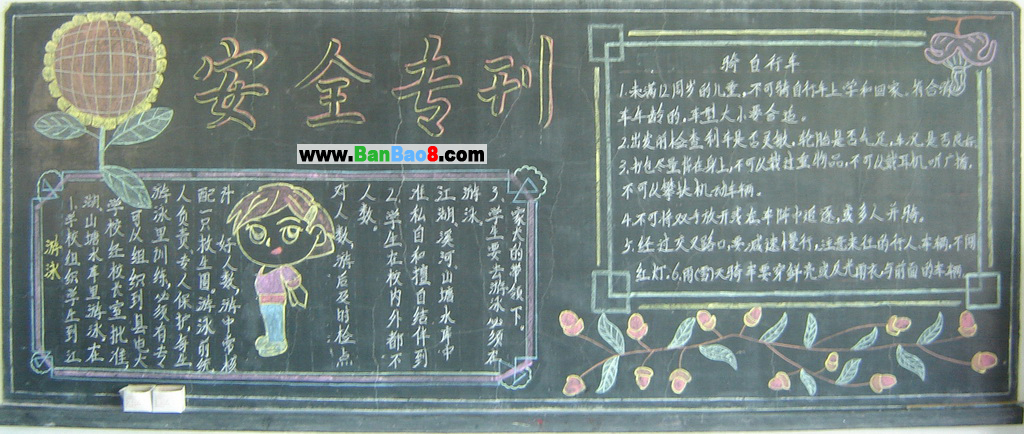 安全专刊
www.BanBao8.com
游泳
1.学校组织学生到江
湖山塘水库里游泳,在
学校经校长室批准,
可以组织到县电大
游泳里训练,必须有专
人负责,专人保护,每生
配一只救生圈。游泳前统
计好人数,游中常核
对人数,游后及时检点
人数。
2.学生在校内外都不
准私自和擅自结伴到
江湖溪河山塘水库中
游泳。
3.学生要去游泳必须在
家长的带领下。
骑自行车
1.未满12周岁的儿童,不可骑自行车上学和回家。符合骑
车年龄的,车型大小要合适。
2.出发前检查刹车是否灵敏,轮胎是否气足,车况是否良好。
3.书包尽量背在身上,不可以载过重物品,不可以戴耳机听广播,
不可以攀扶机动车辆。
4.不可将双手放开或在车阵中追逐,或多人并骑。
5.经过交叉路口,要减速慢行,注意来往的行人、车辆,不闯
红灯。6.雨(雪)天骑车要穿鲜亮或反光雨衣,与前面的车辆